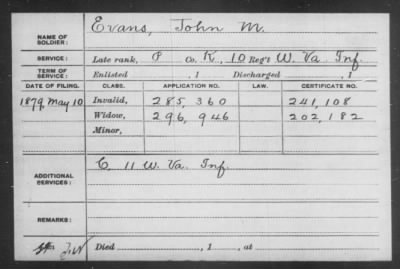 NAME OF SOLDIER: Evans, John M.
SERVICE: Late rank, P Co. K, 10 Reg't W. Va. Inf.
TERM OF SERVICE: Enlisted , 1 Discharged , 1
DATE OF FILING. CLASS. APPLICATION NO. LAW. CERTIFICATE NO.
1879, May 10 Invalid, 285,360 241,108
Widow, 296,946 202,182
Minor,
ADDITIONAL SERVICES: C, 11 W. Va. Inf.
REMARKS:
Died , 1 , at